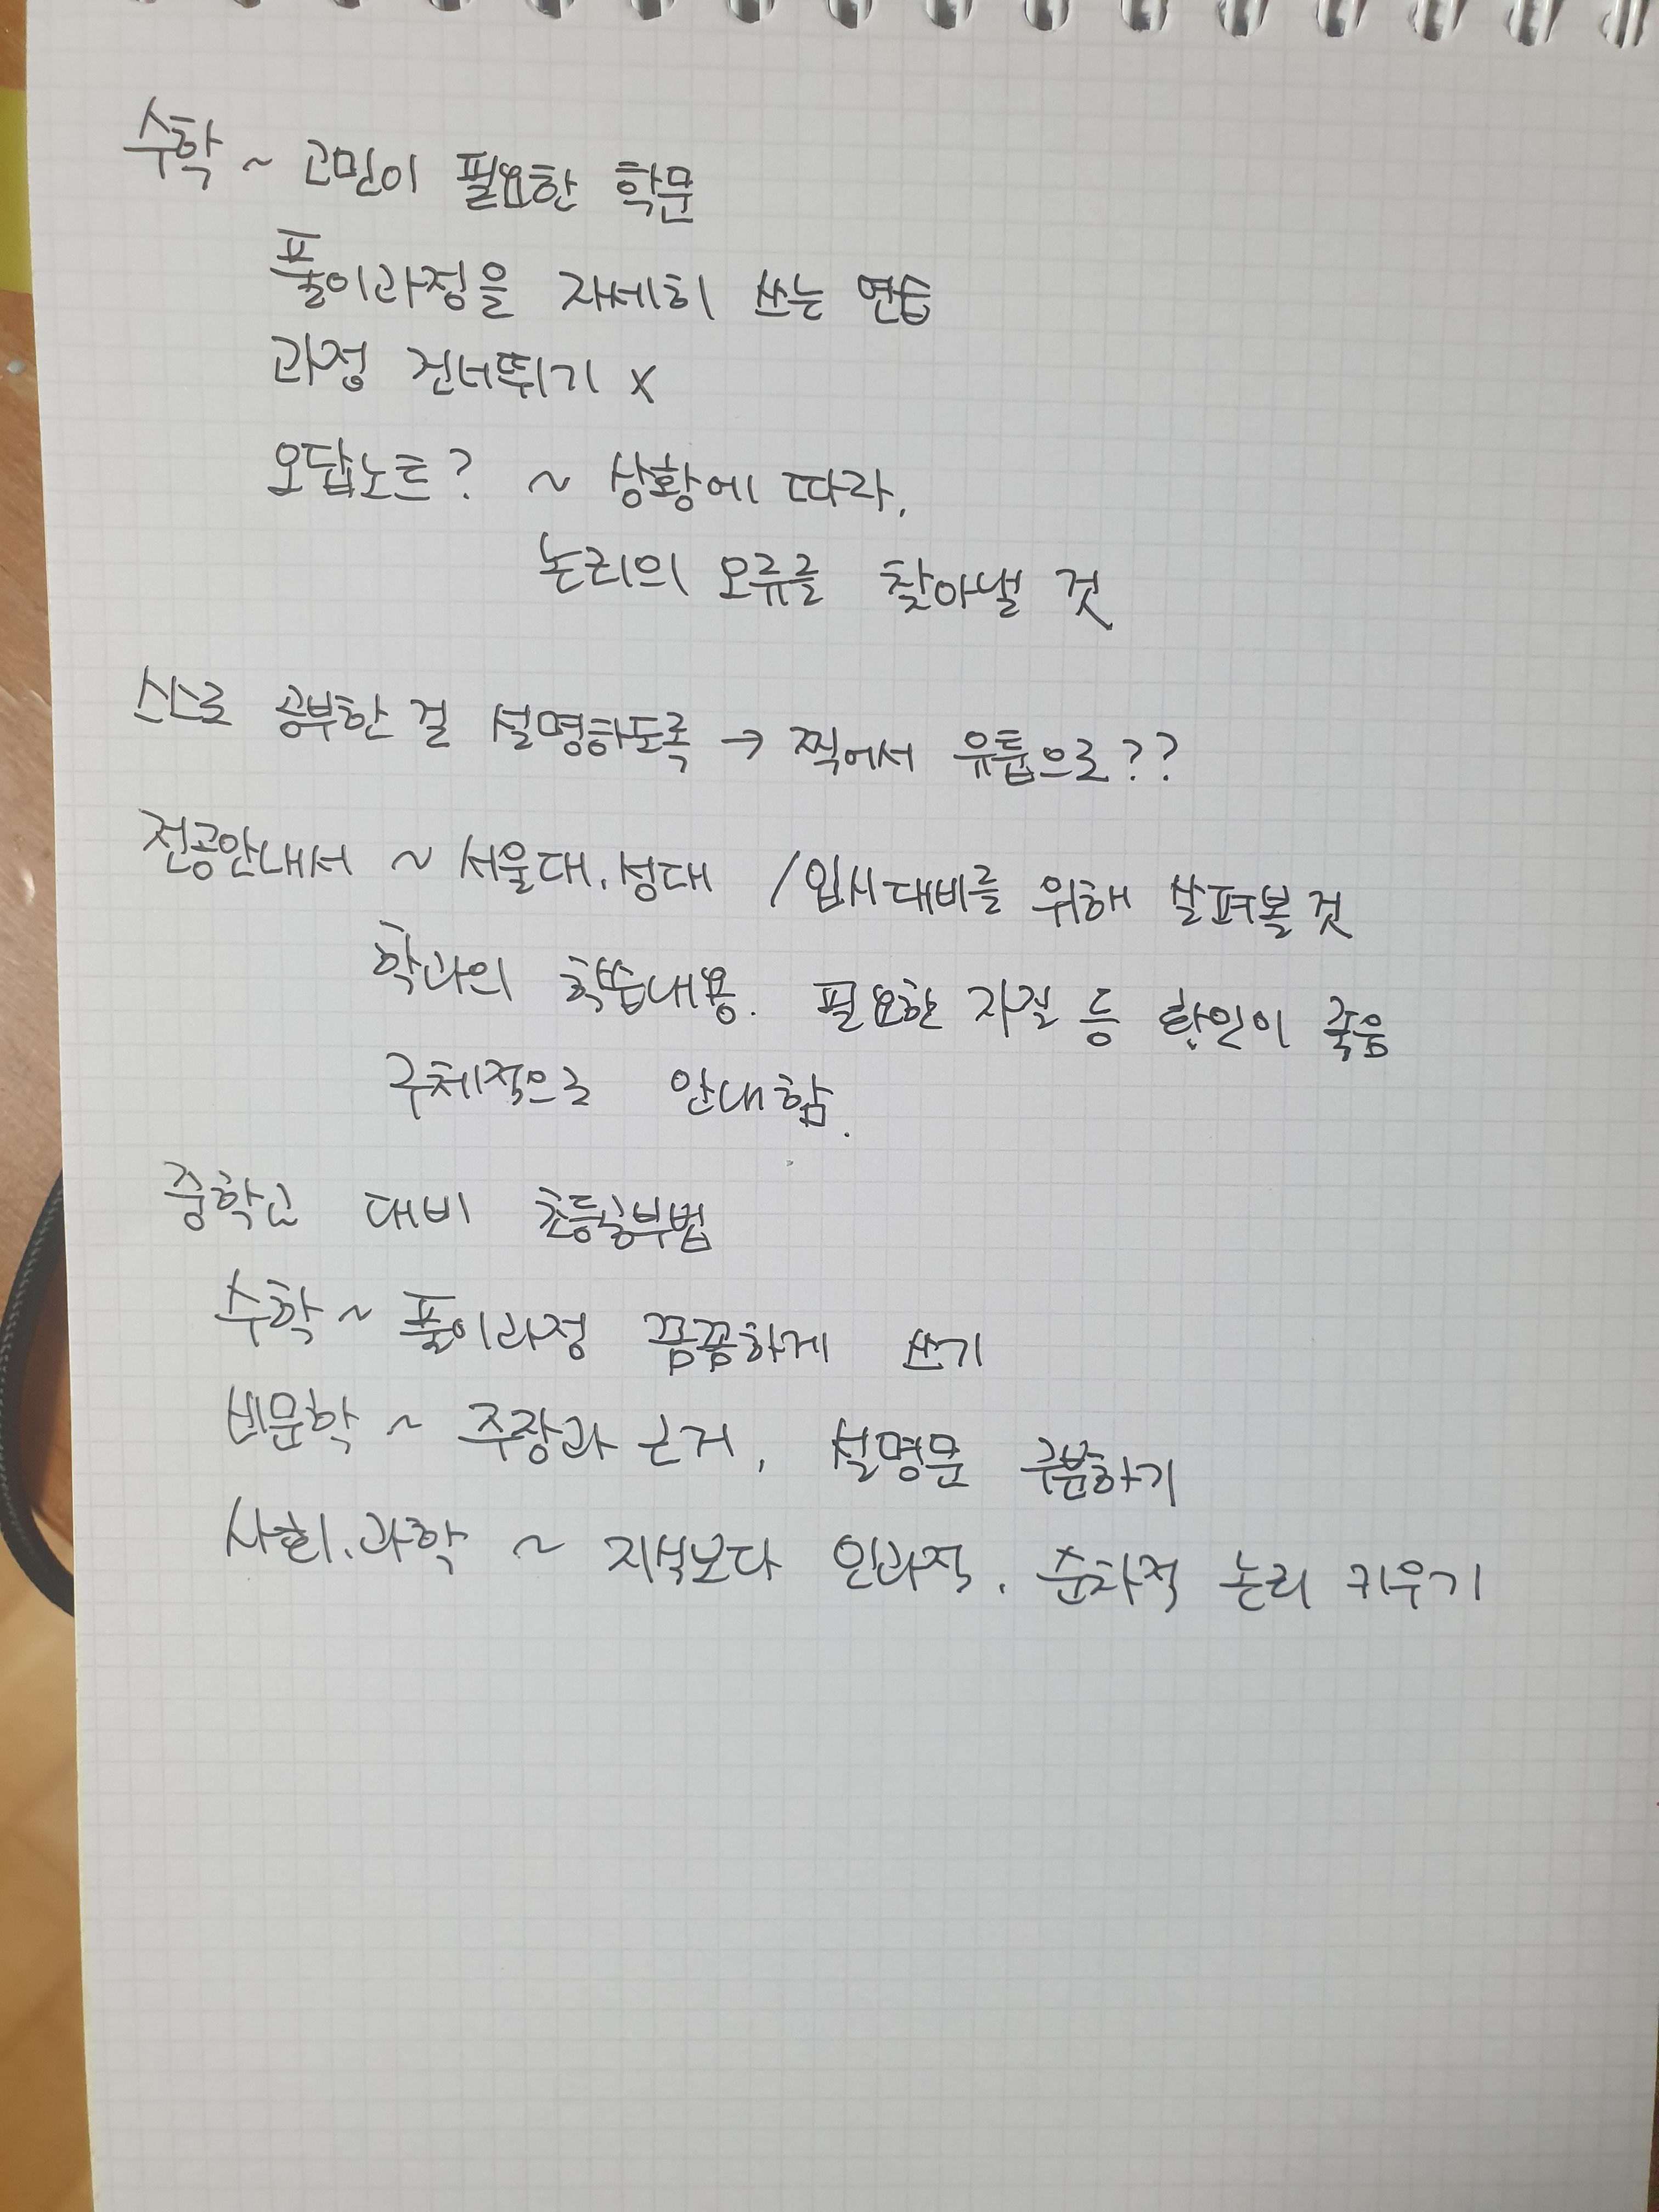 수학 ~ 고민이 필요한 학문
풀이과정을 자세히 쓰는 연습
과정 건너뛰기 x
오답노트? ~ 상황에 따라.
논리의 오류를 찾아낼 것
스스로 공부한 걸 설명하도록 → 찍어서 유튭으로??
전공안내서 ~ 서울대. 성대 / 입시대비를 위해 살펴볼 것
학과의 학습내용. 필요한 자질 등
구체적으로 안내함.
중학교 대비 초등공부법
수학 ~ 풀이과정 꼼꼼하게 쓰기
비문학 ~ 주장과 근거, 설명문 구분하기
사회. 과학 ~ 지식보다 인과적. 순차적 논리 키우기